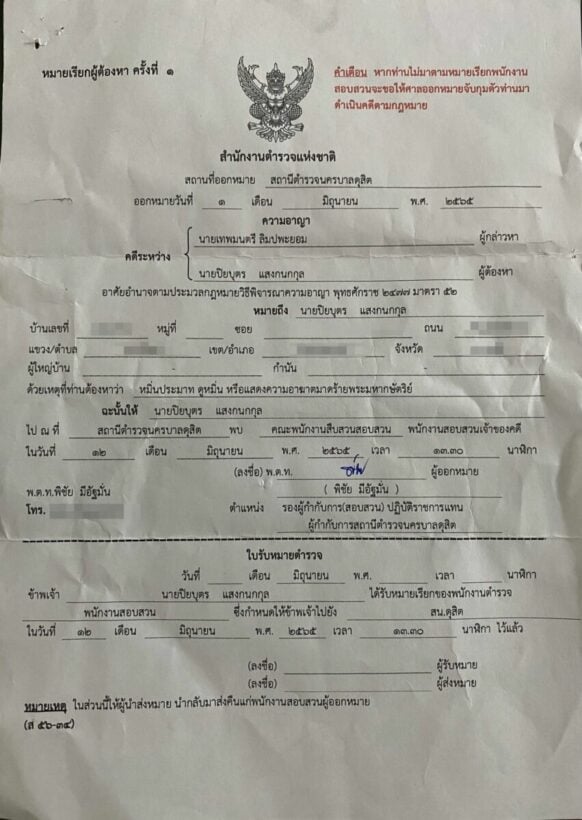 หมายเรียกผู้ต้องหา ครั้งที่ ๑
คำเตือน หากท่านไม่มาตามหมายเรียกพนักงาน
สอบสวนจะขอให้ศาลออกหมายจับกุมตัวท่านมา
ดำเนินคดีตามกฎหมาย
สำนักงานตำรวจแห่งชาติ
สถานที่ออกหมาย สถานีตำรวจนครบาลดุสิต
ออกหมายวันที่ ๑ เดือน มิถุนายน พ.ศ. ๒๕๖๕
ความอาญา
นายเทพมนตรี ลิมปพะยอม ผู้กล่าวหา
คดีระหว่าง
นายปิยบุตร แสงกนกกุล ผู้ต้องหา
อาศัยอำนาจตามประมวลกฎหมายวิธีพิจารณาความอาญา พุทธศักราช ๒๔๗๗ มาตรา ๕๒
หมายถึง นายปิยบุตร แสงกนกกุล
บ้านเลขที่ หมู่ที่ ซอย ถนน
แขวง/ตำบล เขต/อำเภอ จังหวัด
ผู้ใหญ่บ้าน กำนัน
ด้วยเหตุที่ท่านต้องหาว่า หมิ่นประมาท ดูหมิ่น หรือแสดงความอาฆาตมาดร้ายพระมหากษัตริย์
ฉะนั้นให้ นายปิยบุตร แสงกนกกุล
ไป ณ ที่ สถานีตำรวจนครบาลดุสิต พบ คณะพนักงานสืบสวนสอบสวน พนักงานสอบสวนเจ้าของคดี
ในวันที่ ๑๒ เดือน มิถุนายน พ.ศ. ๒๕๖๕ เวลา ๑๓.๓๐ นาฬิกา
(ลงชื่อ) พ.ต.ท. ผู้ออกหมาย
พ.ต.ท.พิชัย มีอัฐมั่น ( พิชัย มีอัฐมั่น )
โทร. ตำแหน่ง รองผู้กำกับการ(สอบสวน) ปฏิบัติราชการแทน
ผู้กำกับการสถานีตำรวจนครบาลดุสิต
ใบรับหมายตำรวจ
วันที่ เดือน มิถุนายน พ.ศ. เวลา นาฬิกา
ข้าพเจ้า นายปิยบุตร แสงกนกกุล ได้รับหมายเรียกของพนักงานตำรวจ
พนักงานสอบสวน ซึ่งกำหนดให้ข้าพเจ้าไปยัง สน.ดุสิต
ในวันที่ ๑๒ เดือน มิถุนายน พ.ศ. ๒๕๖๕ เวลา ๑๓.๓๐ นาฬิกา ไว้แล้ว
(ลงชื่อ) ผู้รับหมาย
(ลงชื่อ) ผู้ส่งหมาย
หมายเหตุ ในส่วนนี้ให้ผู้นำส่งหมาย นำกลับมาส่งคืนแก่พนักงานสอบสวนผู้ออกหมาย
(ส ๕๖-๓๔)